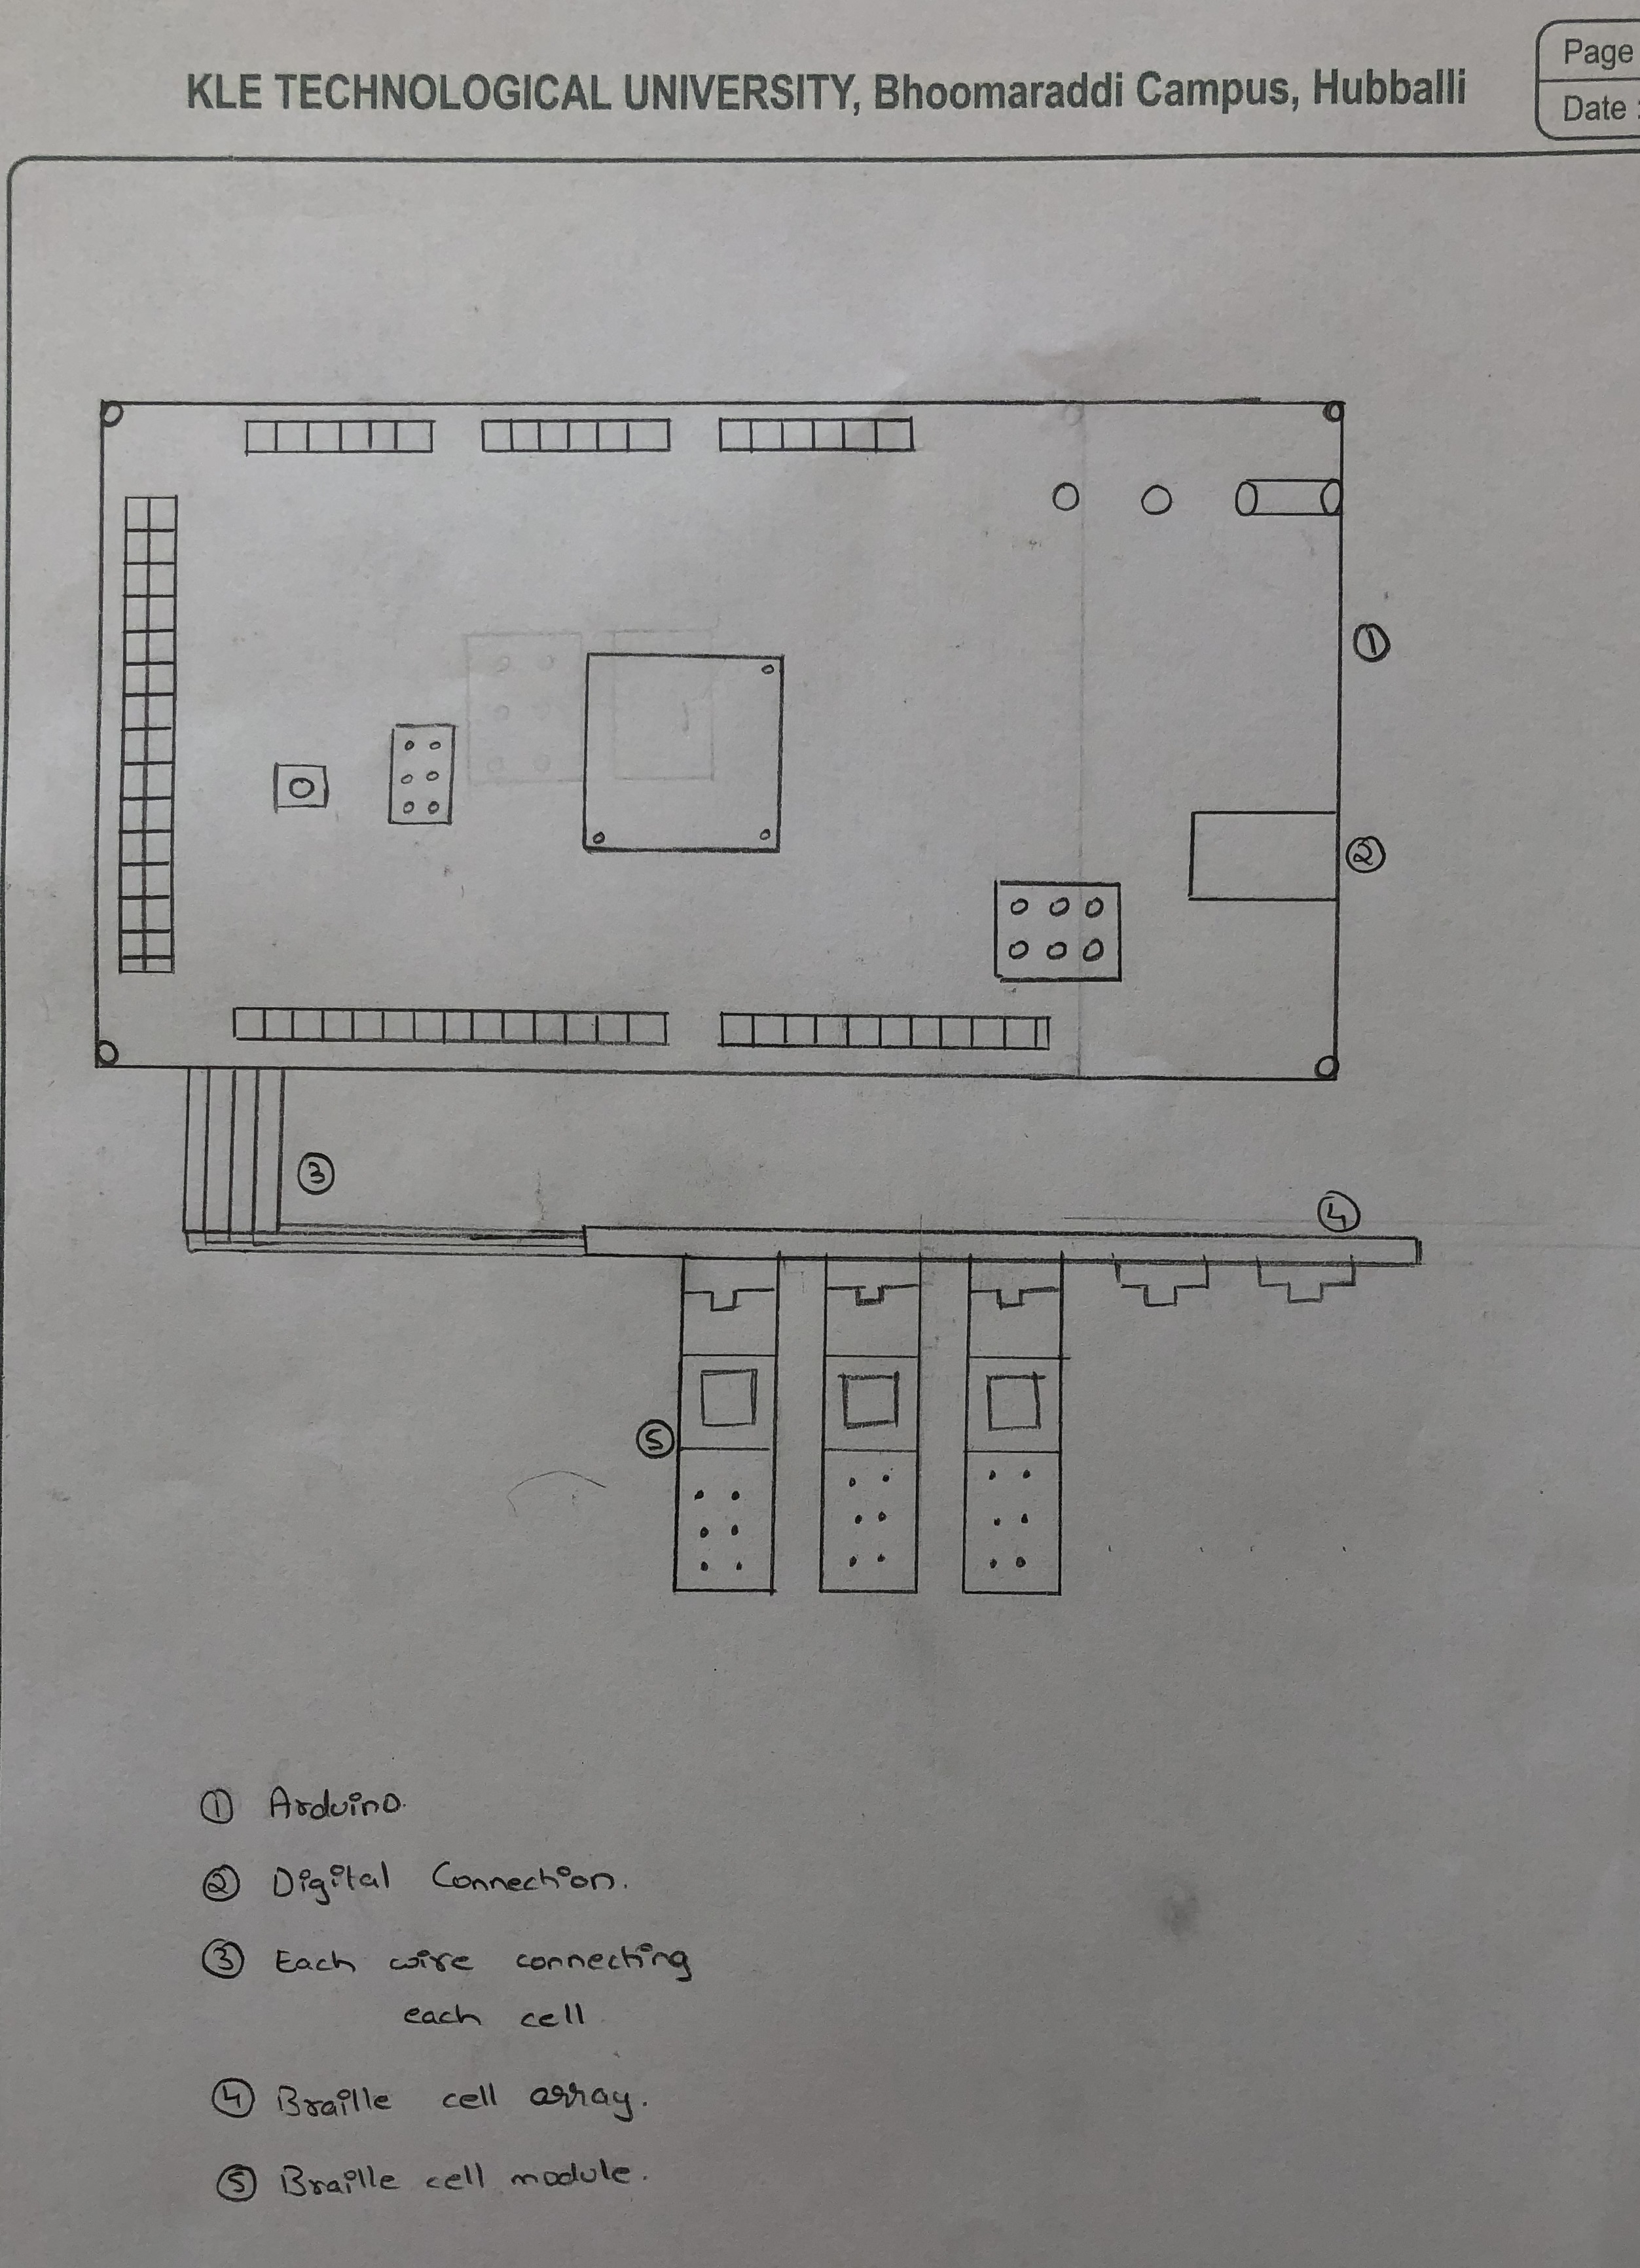 KLE TECHNOLOGICAL UNIVERSITY, Bhoomaraddi Campus, Hubballi
Page
Date :
①
②
③
④
⑤
① Arduino.
② Digital Connection.
③ Each wire connecting
each cell
④ Braille cell array.
⑤ Braille cell module.